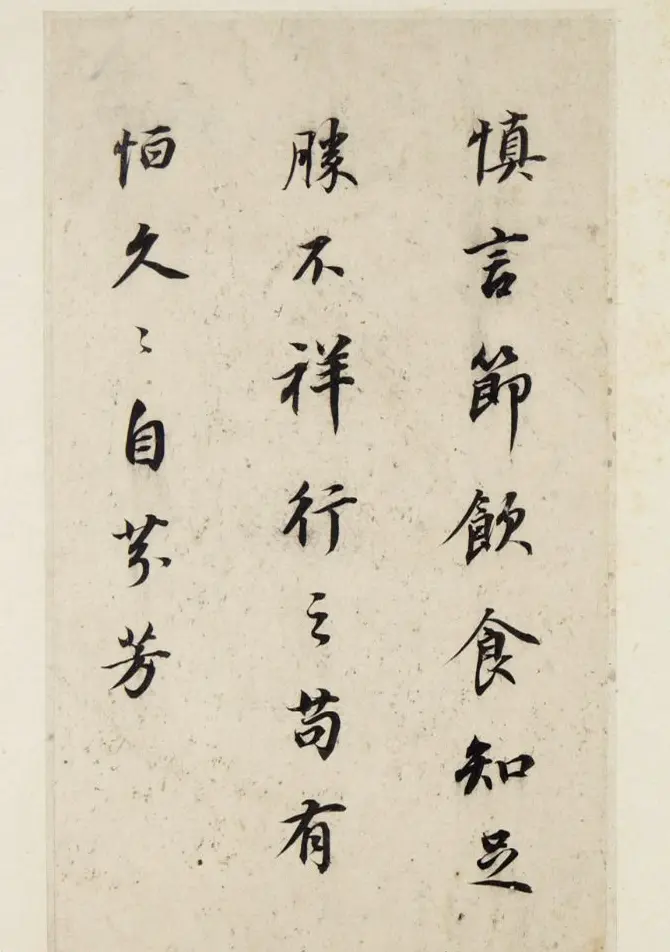 慎言節飲食知足
勝不祥行之苟有
恒久々自芬芳